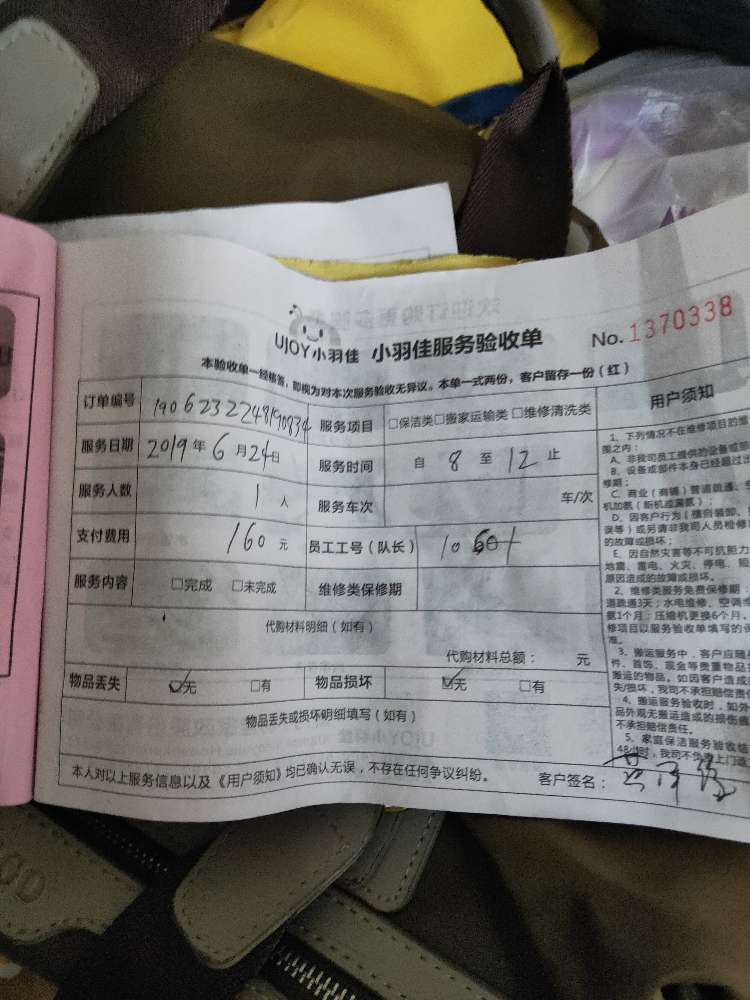 UJOY小羽佳 小羽佳服务验收单 No. 1370338
本验收单一经核答，即视为对本次服务验收无异议。本单一式两份，客户留存一份（红）
订单编号 服务项目 □保洁类□搬家运输类 □维修清洗类
服务日期 2019年 6 月 24日 服务时间 自 8 至 12 止
服务人数 1 人 服务车次 车/次
支付费用 160 元 员工工号（队长）
服务内容 □完成 □未完成 维修类保修期
代购材料明细（如有）
代购材料总额： 元
物品丢失 ☑无 □有 物品损坏 ☑无 □有
物品丢失或损坏明细填写（如有）
本人对以上服务信息以及《用户须知》均已确认无误，不存在任何争议纠纷。 客户签名：
用户须知
1、下列情况不在维修项目的维
围之内：
A、非我司员工提供的设备或部
B、设备或部件本身已经超过
修期；
C、商业（商铺）管道疏通、空
机加氟（新机或漏氟）；
D、因客户行为（擅自装卸、
误等）或另请非我司人员检修
的故障或损坏；
E、因自然灾害等不可抗拒力
地震、雷电、火灾、停电、短
原因造成的故障或损坏。
2、维修类服务免费保修期：
道疏通3天；水电维修、空调
氨1个月；压缩机更换6个月。
修项目以服务验收单填写的
准。
3、搬运服务中，客户应随身
件、首饰、现金等贵重物品
搬运的物品。如因客户造成
失/损坏，我司不承担赔偿责
4、搬运服务验收时，如外
品外观无搬运造成的损伤
不承担赔偿责任。
5、家庭保洁服务验收
48小时，我司不负责上门